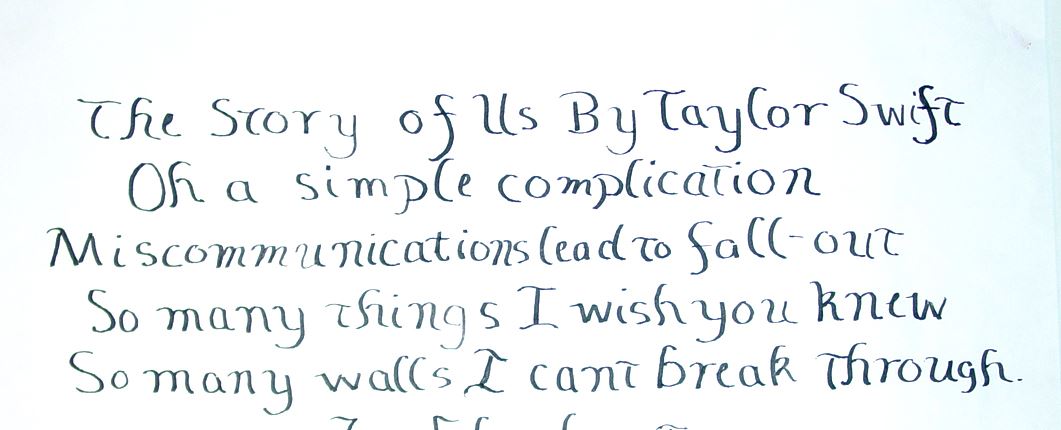 The Story of Us By Taylor Swift
Oh a simple complication
Miscommunications lead to fall-out
So many things I wish you knew
So many walls I cant break through.